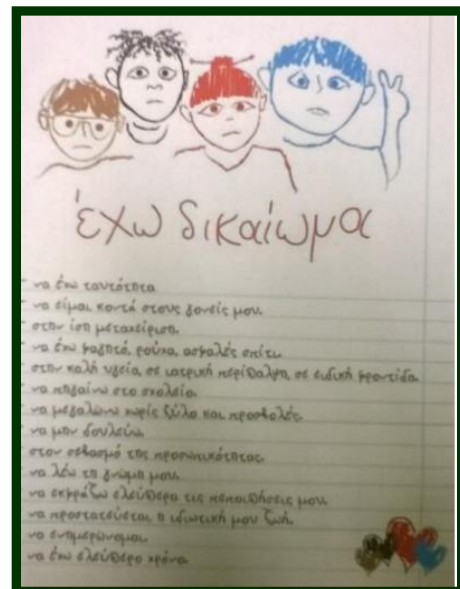 έχω δικαίωμα
- να έχω ταυτότητα
- να είμαι κοντά στους γονείς μου.
- στην ίση μεταχείριση.
- να έχω φαγητό, ρούχα, ασφαλές σπίτι.
- στην καλή υγεία, σε ιατρική περίθαλψη, σε ειδική φροντίδα.
- να πηγαίνω στο σχολείο.
- να μεγαλώνω χωρίς ξύλο και προσβολές.
- να μην δουλεύω.
- στον σεβασμό της προσωπικότητας.
- να λέω τη γνώμη μου.
- να εκφράζω ελεύθερα τις πεποιθήσεις μου.
- να προστατεύεται η ιδιωτική μου ζωή.
- να ενημερώνομαι.
- να έχω ελεύθερο χρόνο.